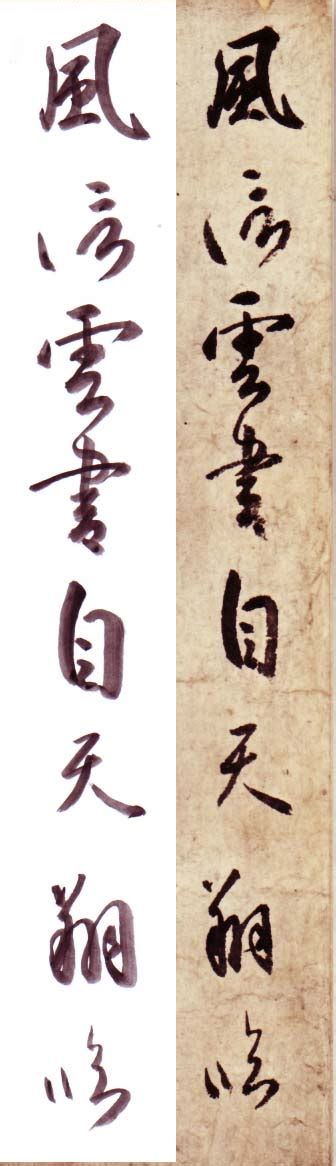 風信雲書自天翔臨
風信雲書自天翔臨